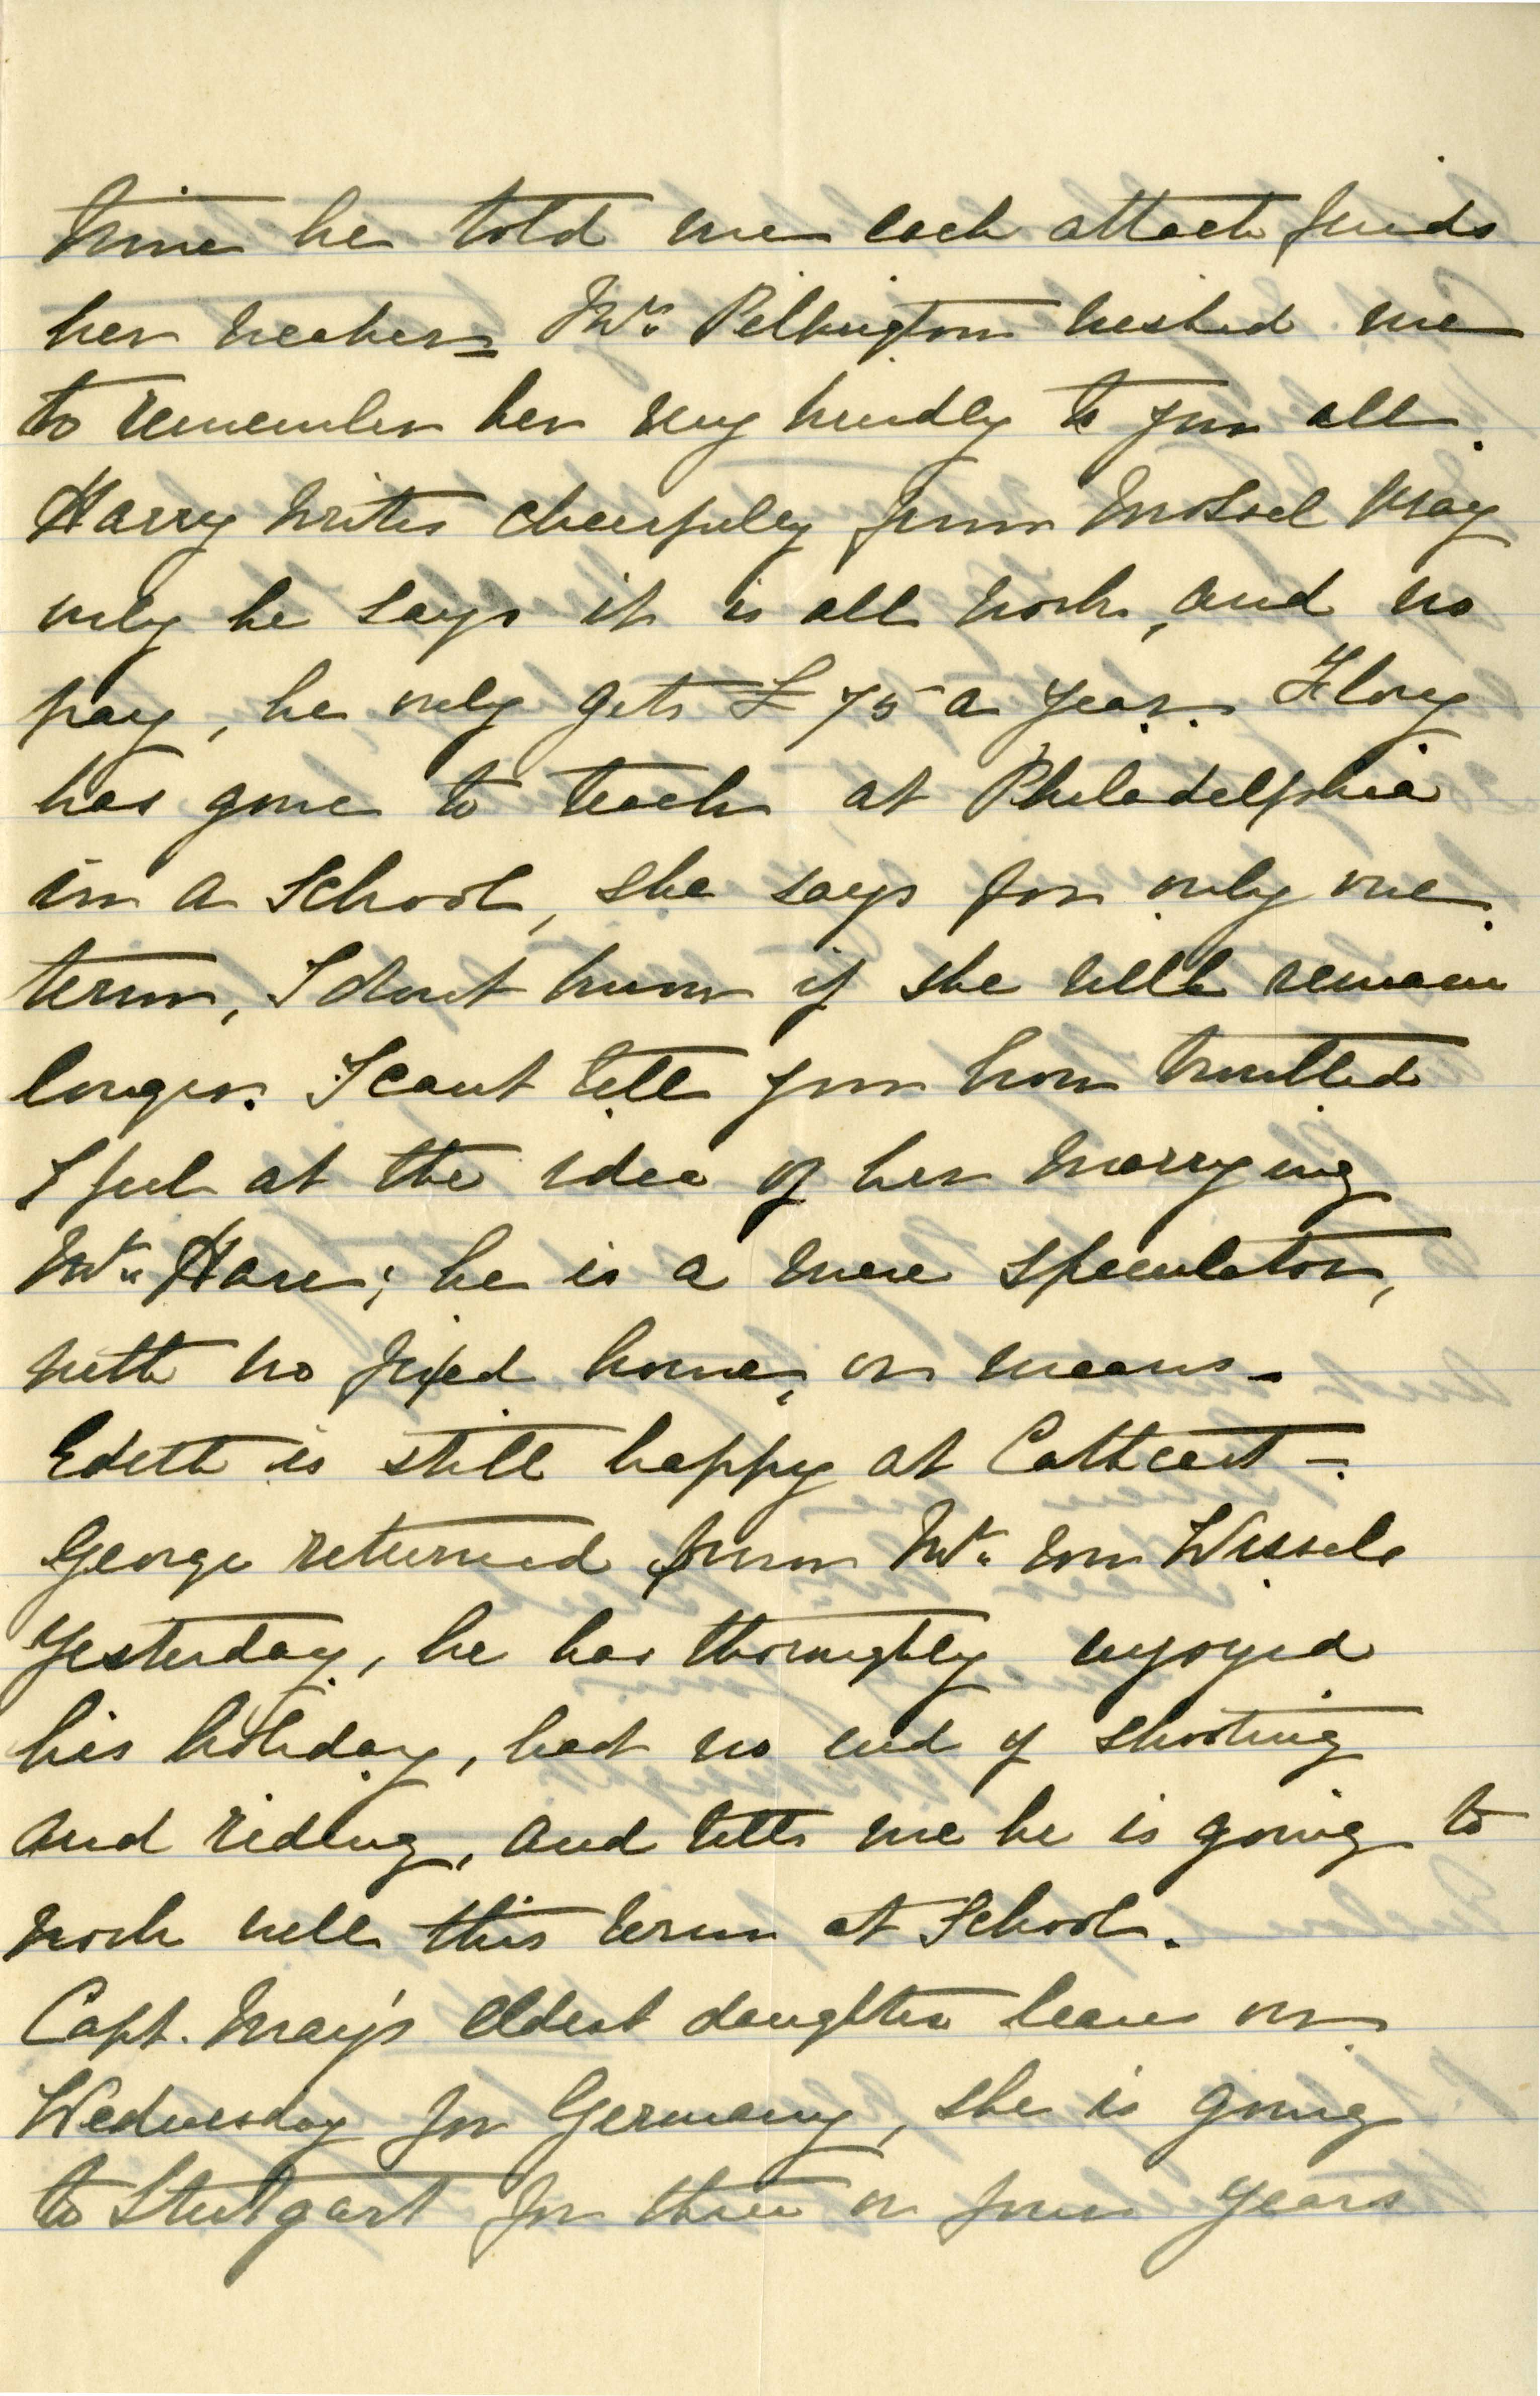 time he told me each attack finds
her weaker = Mrs. Pilkington wished me
to remember her very kindly to you all.
Harry writes cheerfully from Mossel Bay
only he says it is all work, and no
pay, he only gets £75 a year. Flory
has gone to teach at Philadelphia
in a School, she says for only one
term, I dont know if she will remain
longer. I cant tell you how troubled
I feel at the idea of her marrying
Mr. Hare; he is a mere speculator,
with no fixed home, or means -
Edith is still happy at Cathcart -.
George returned from Mr. Wessels
yesterday, he has thoroughly enjoyed
his holiday, had no end of shooting
and riding, and tells me he is going to
work well this term at School.
Capt. May's eldest daughter leaves on
Wednesday for Germany, she is going
to Stutgart for three or four years